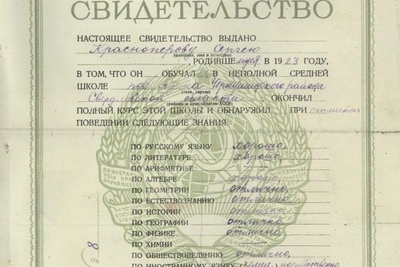 СВИДЕТЕЛЬСТВО
НАСТОЯЩЕЕ СВИДЕТЕЛЬСТВО ВЫДАНО
Красноперову Сергею
РОДИВШЕМУСЯ В 1923 ГОДУ,
В ТОМ, ЧТО ОН ОБУЧАЛ В НЕПОЛНОЙ СРЕДНЕЙ
ШКОЛЕ района
области ОКОНЧИЛ
ПОЛНЫЙ КУРС ЭТОЙ ШКОЛЫ И ОБНАРУЖИЛ ПРИ отличном
ПОВЕДЕНИИ СЛЕДУЮЩИЕ ЗНАНИЯ:
ПО РУССКОМУ ЯЗЫКУ хорошо,
ПО ЛИТЕРАТУРЕ хорошо,
ПО АРИФМЕТИКЕ
ПО АЛГЕБРЕ хорошо,
ПО ГЕОМЕТРИИ отлично,
ПО ЕСТЕСТВОЗНАНИЮ отлично,
ПО ИСТОРИИ отлично,
ПО ГЕОГРАФИИ отлично,
ПО ФИЗИКЕ отлично
ПО ХИМИИ
ПО ОБЩЕСТВОВЕДЕНИЮ отлично,
ПО ИНОСТРАННОМУ ЯЗЫКУ